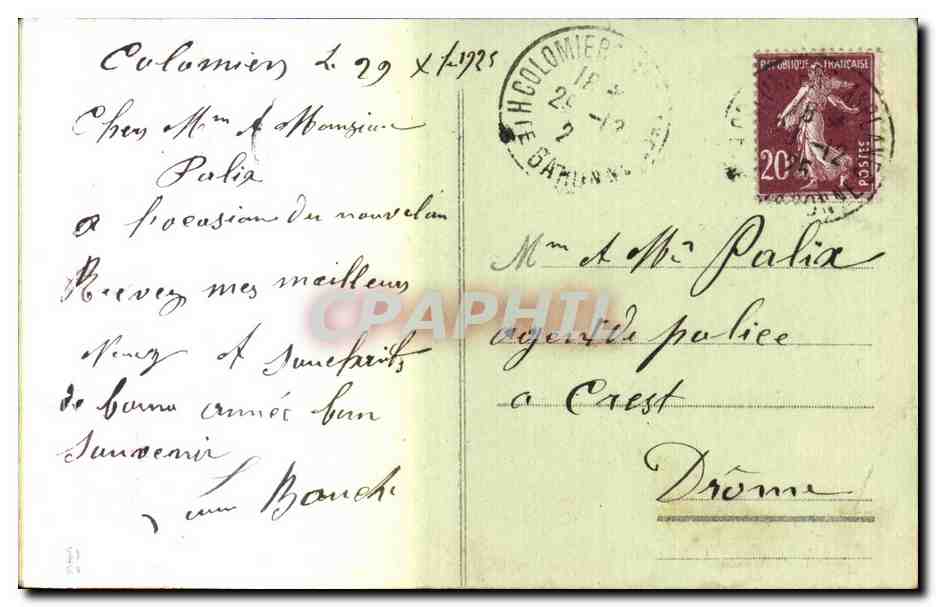 Colomiers Le 29 Xbre 1925
Cher Mme & Monsieur
Palix
a l'ocasion du nouvel an
Recevez mes meilleurs
Veux & souchaits
de bonne année bon
souvenir
Bouch
H COLOMIERS
18
29 -12
2
HTE GARONNE
REPUBLIQUE FRANÇAISE
20c
POSTES
-12
25
Mme & Mr Palix
agent de police
a Crest
Drôme
CPAPHIL